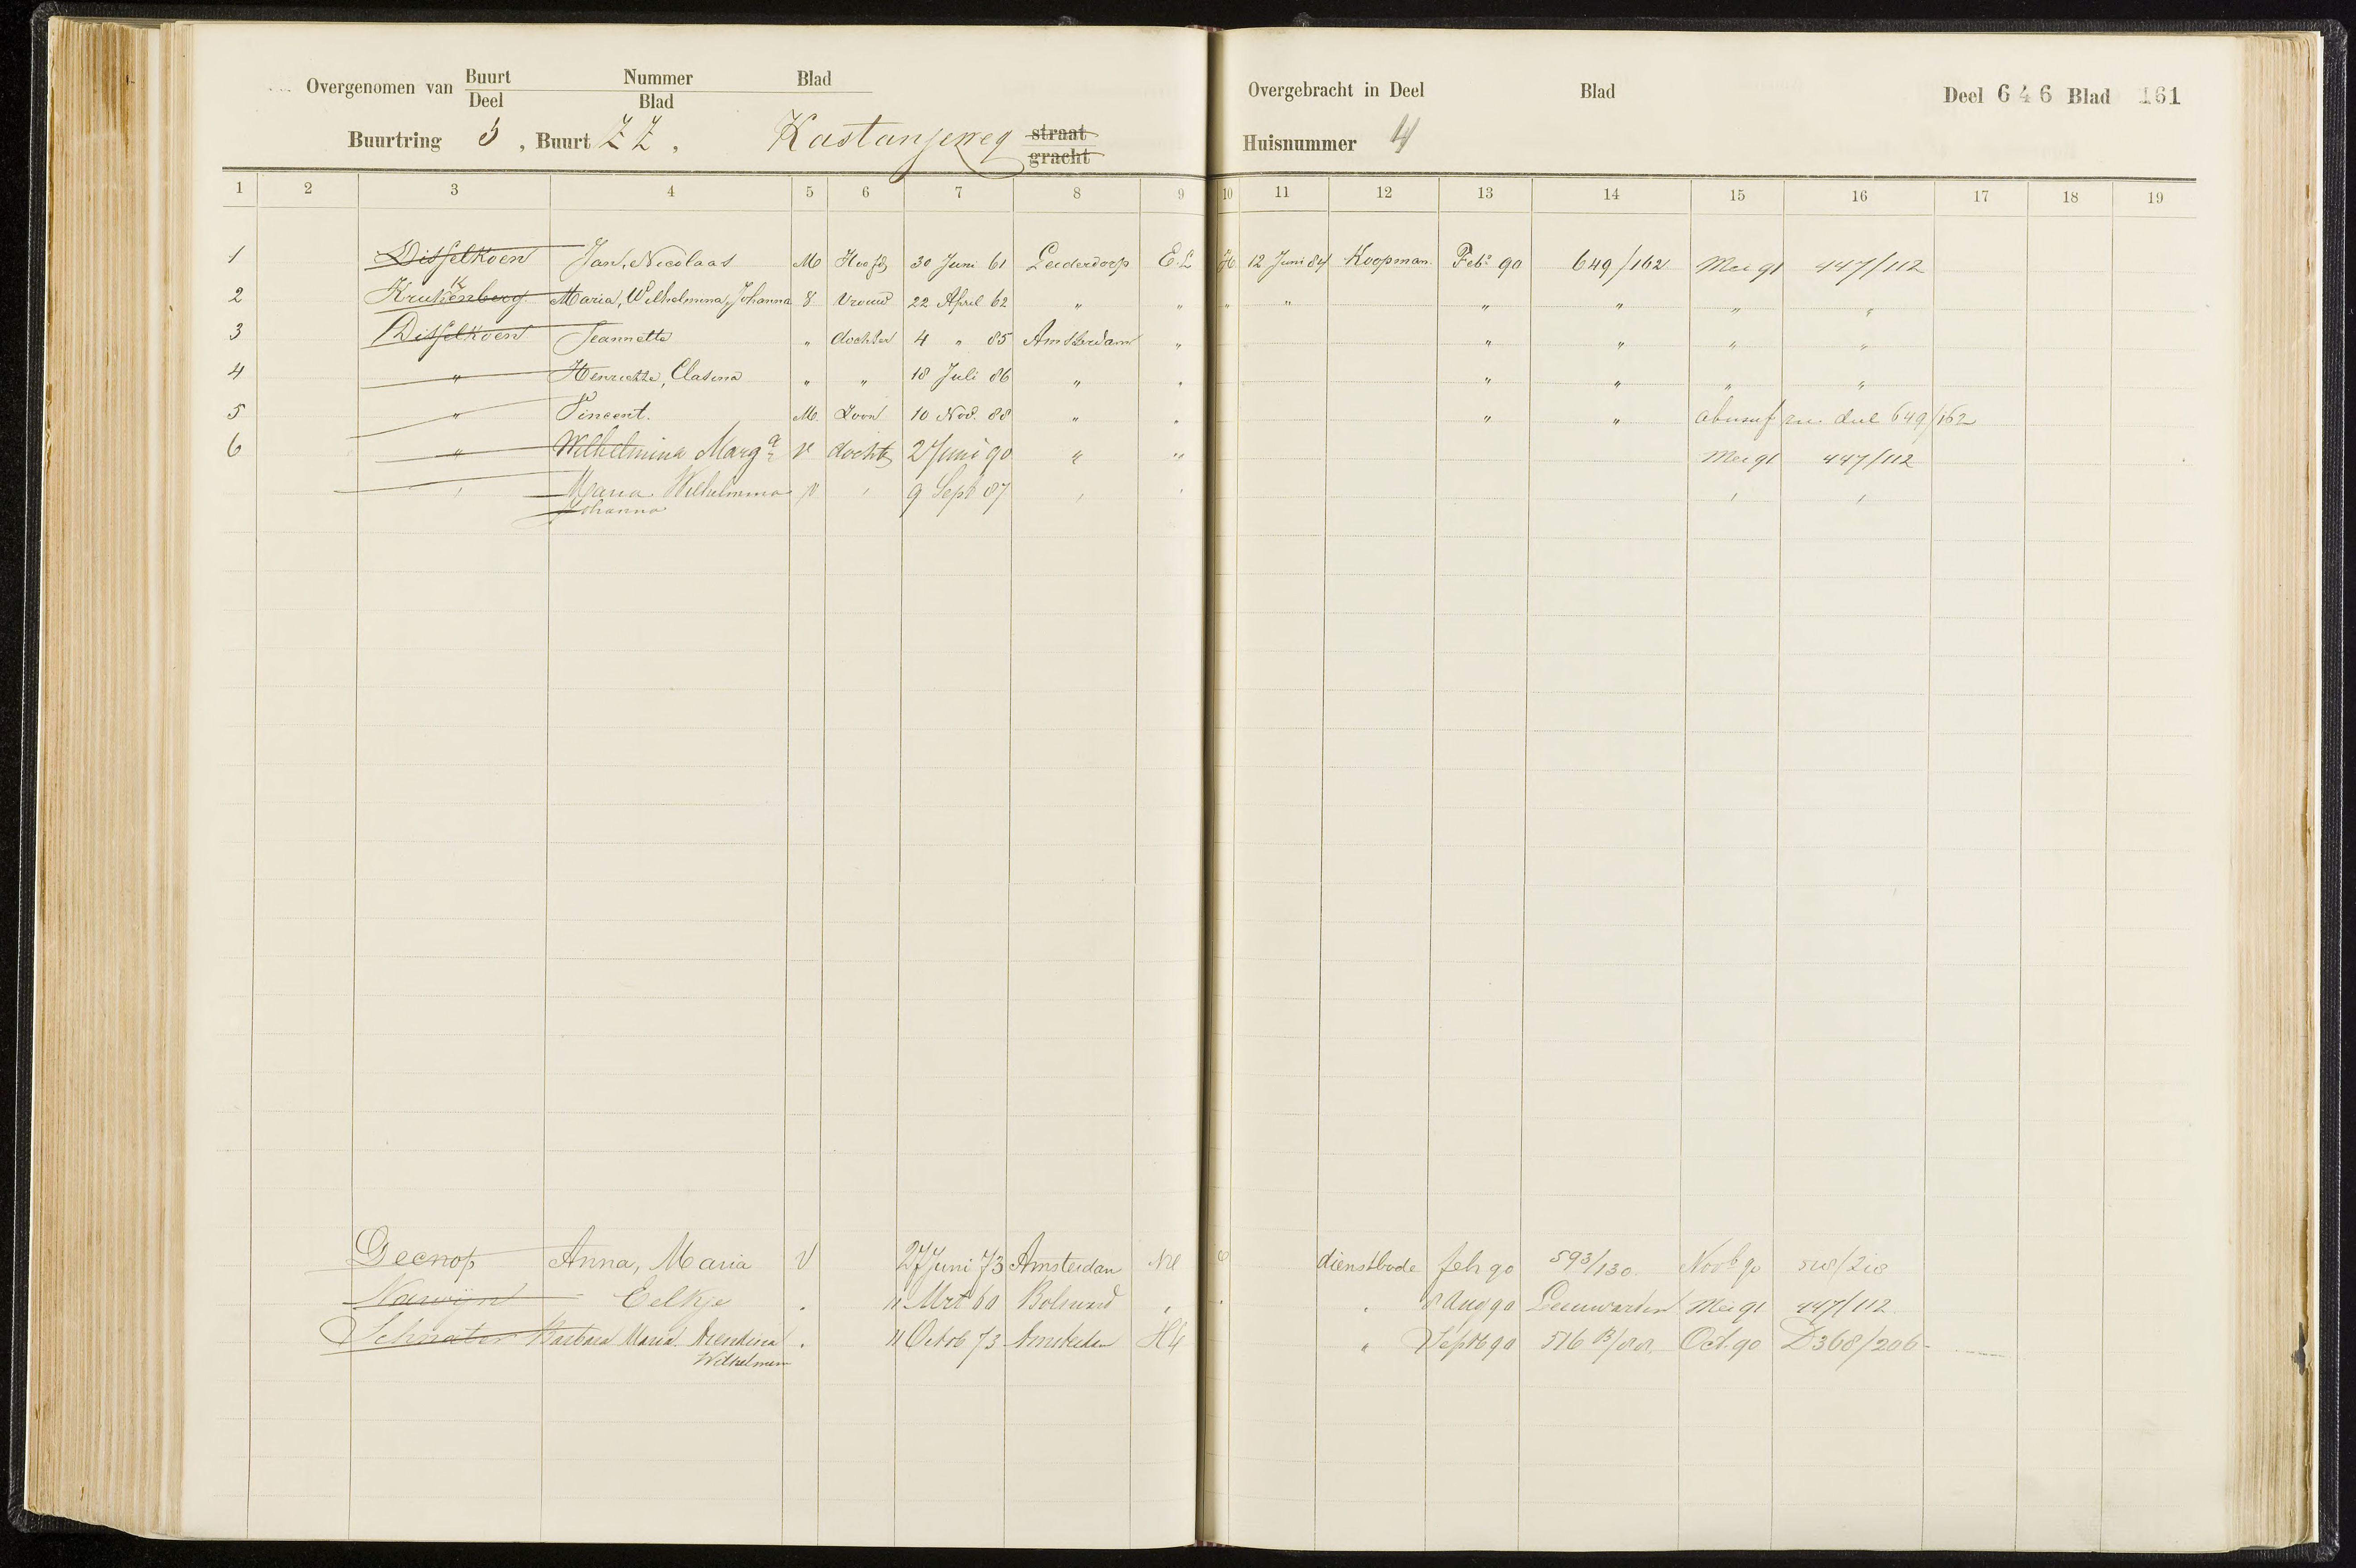 Overgenomen van Buurt Nummer Blad
Deel Blad
Overgebracht in Deel Blad Deel 646 Blad 161
Buurtring 5, Buurt ZZ, Kastanjeweg straat gracht Huisnummer 4
1 2 3 4 5 6 7 8 9 10 11 12 13 14 15 16 17 18 19
1 Disselkoen Jan, Nicolaas M Hoofd 30 Juni 61 Leiderdorp E.L H 12 Juni 84 Koopman. Feb. 90 649/162 Mei 91 447/112
2 Krukenberg K Maria, Wilhelmina, Johanna V Vrouw 22 April 62 " " " " " " " "
3 Disselkoen Jeannette " dochter 4 " 85 Amsterdam " " " " "
4 " Henriette, Clasina " " 18 Juli 86 " " " " " "
5 " Vincent. M. Zoon 10 Nov. 88 " " " " abusief zie deel 649/162
6 " Wilhelmina Marga V docht 2 Juni 90 " " Mei 91 447/112
" Maria Wilhelmina V " 9 Sept 87 " " " "
Johanna
Decnop Anna, Maria V 27 Juni 73 Amsterdam NH dienstbode feb 90 593/130. Novb 90
Narwijn Eelkje " 11 Mrt 60 Bolsward " " 8 Aug 90 Leeuwarden Mei 91 447/112
Schnater Barbara Maria Arendina " 11 Octob 73 Amsterdam " Sept 90 516 Oct. 90 D368/206
Wilhelmin